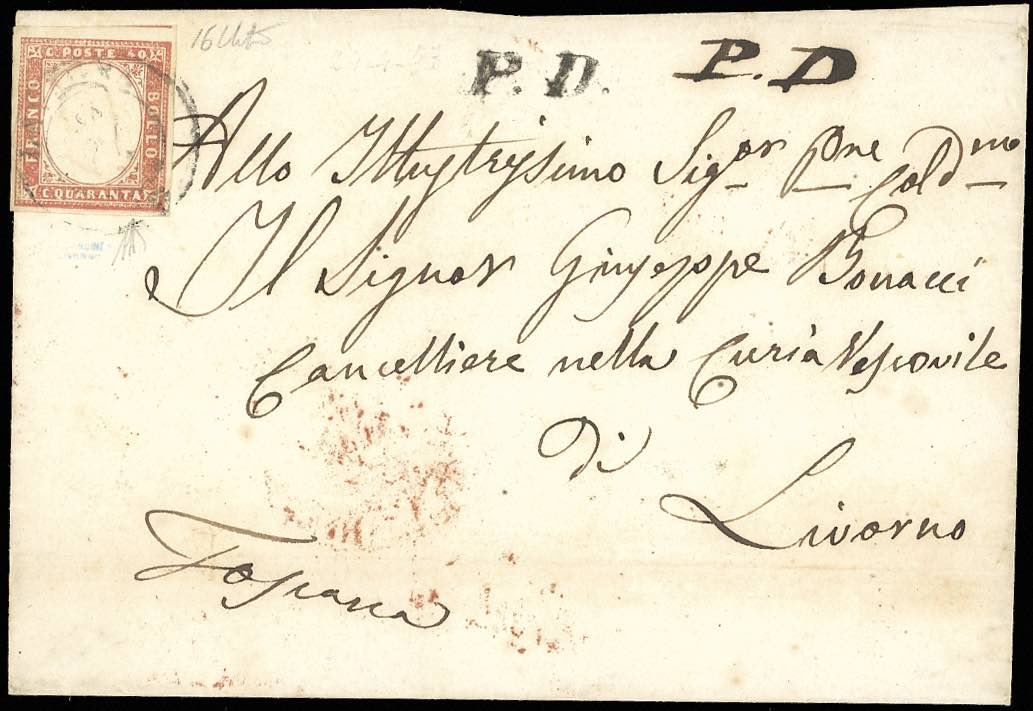 C. POSTE 40
FRANCO
BOLLO
C. QUARANTA
P. D.
P. D
Allo Illustrissimo Sig.or Pne Col.dmo
Il Signor Giuseppe Bonacci
Cancelliere nella Curia Vescovile
Di
Livorno
Toscana